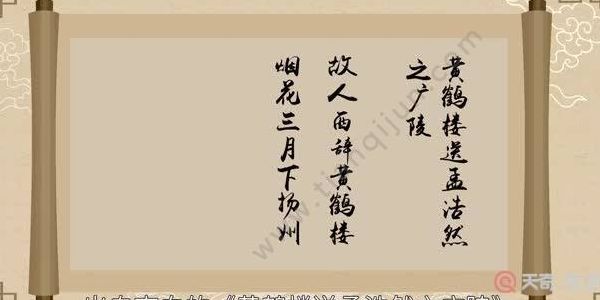 黄鹤楼送孟浩然
之广陵
故人西辞黄鹤楼
烟花三月下扬州
www.tianqijun.com
天奇生活